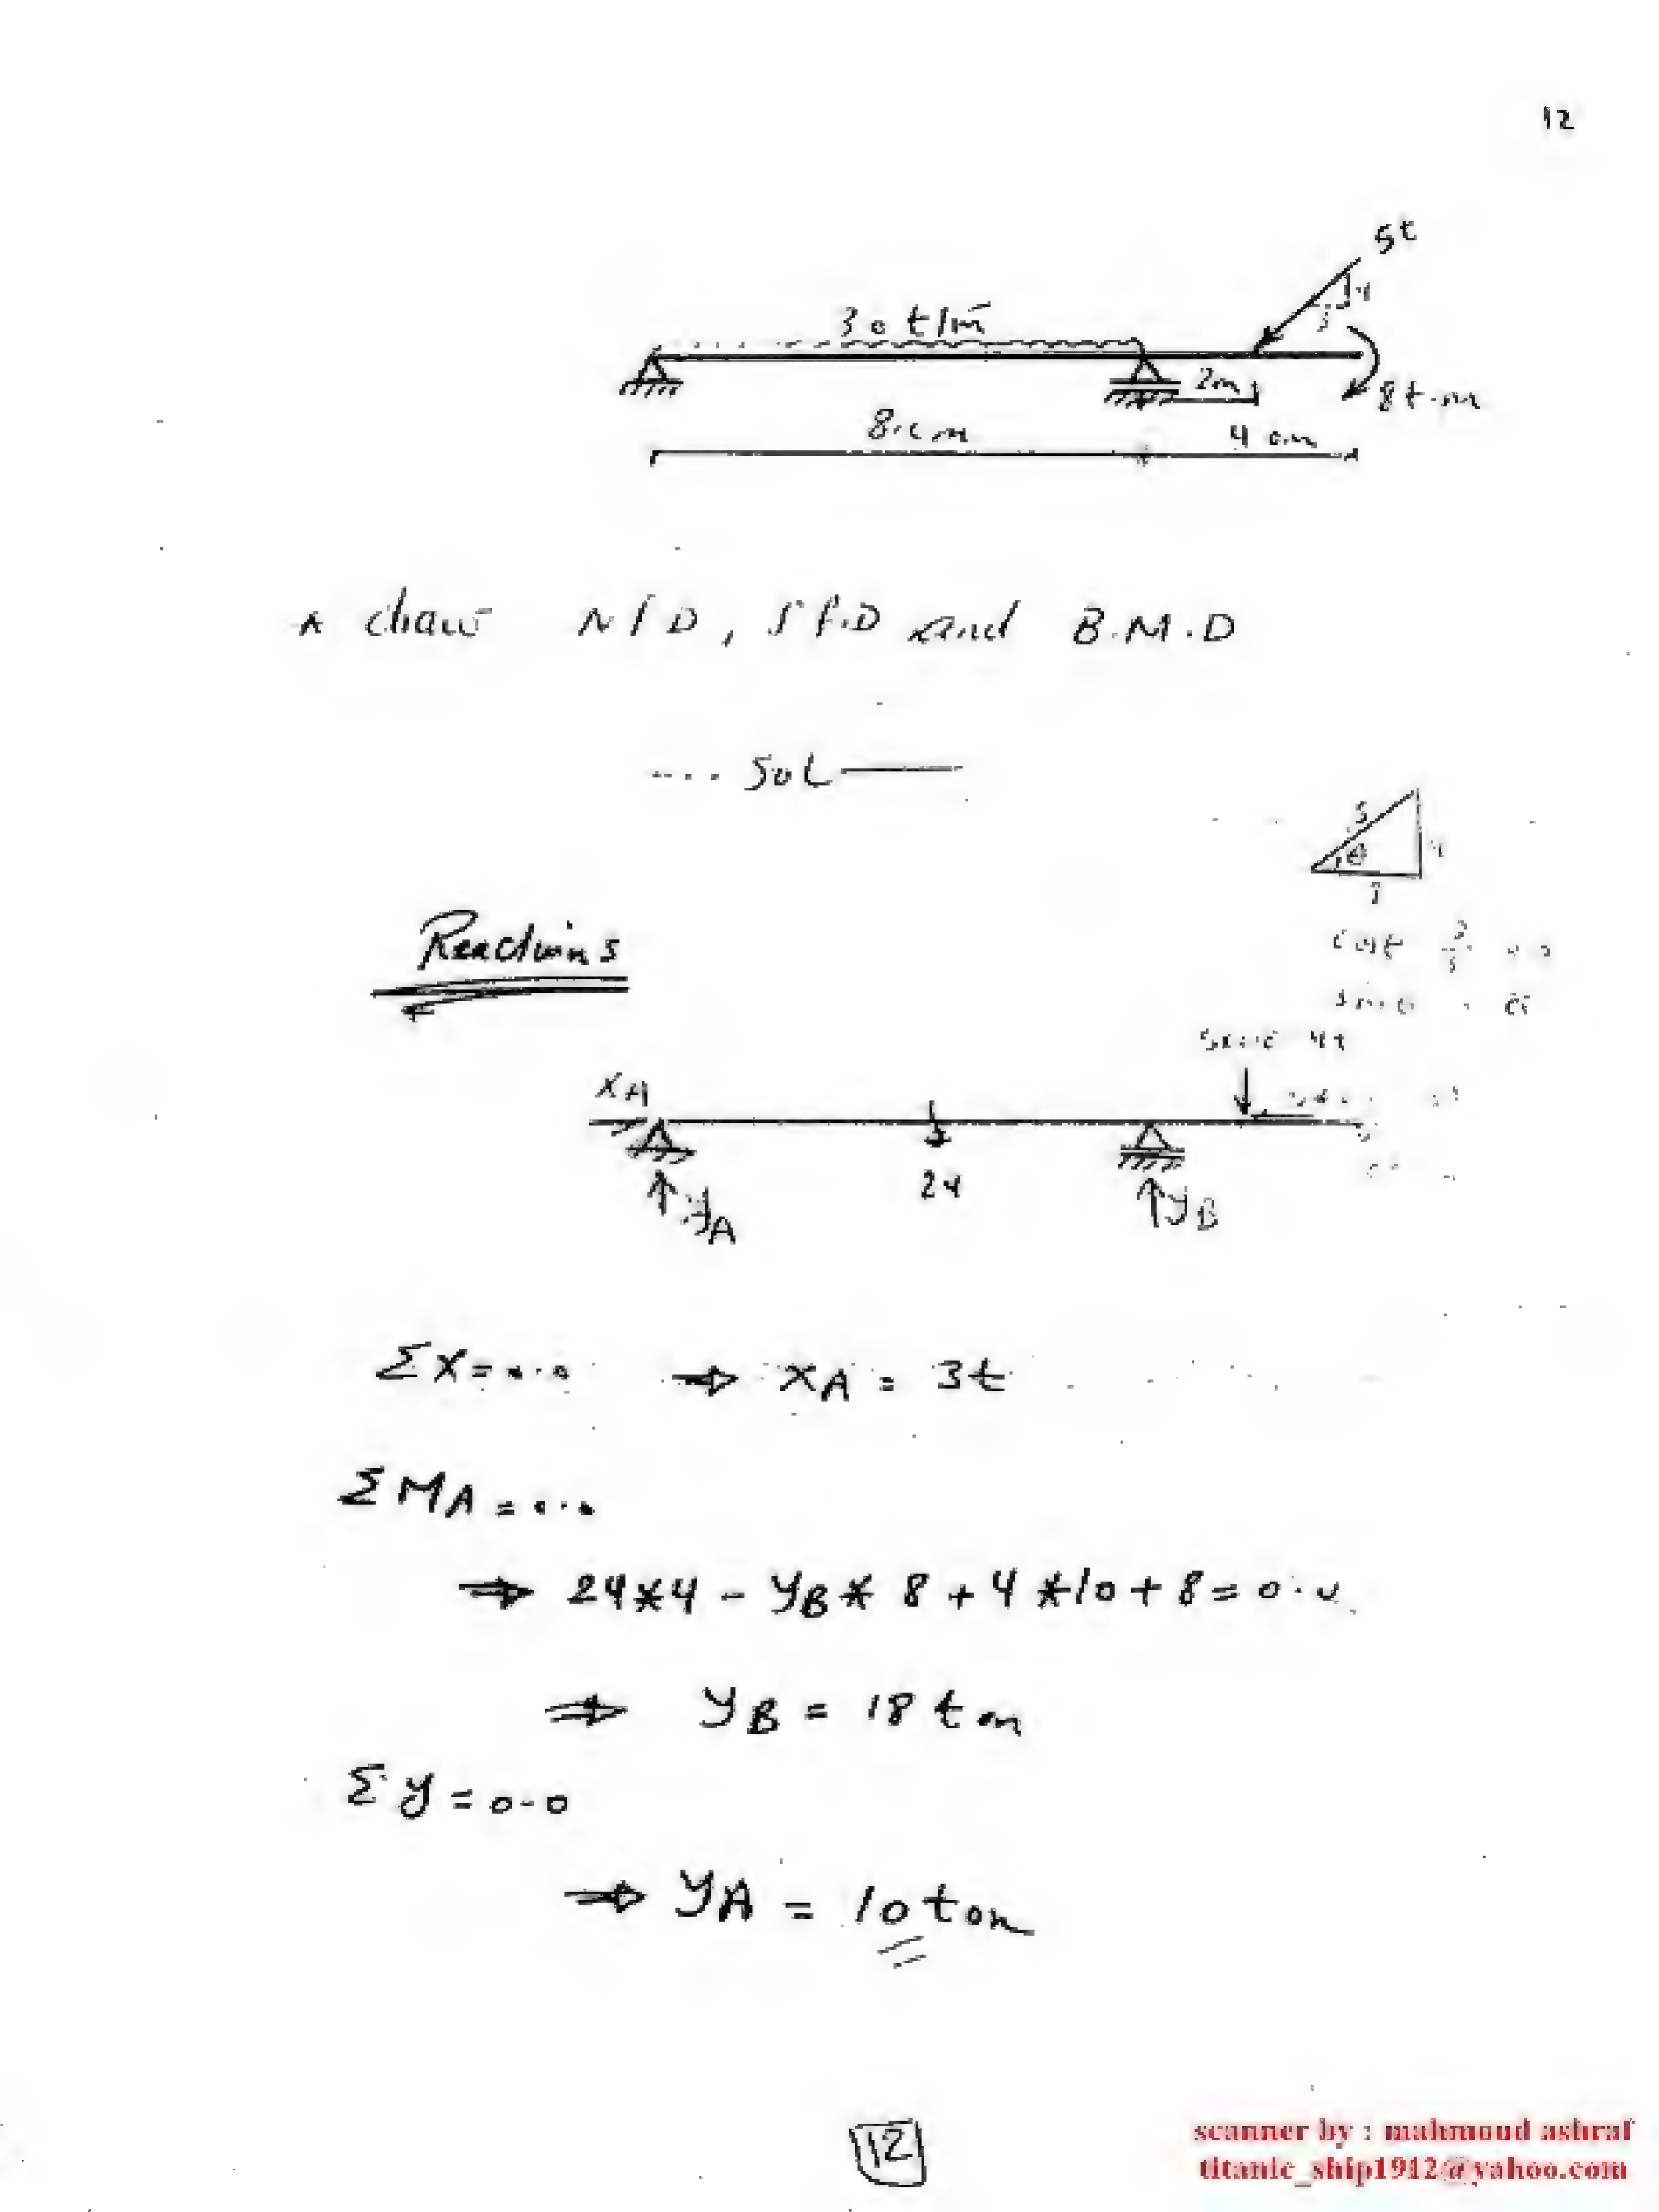 12
5t
4
3
3.0 t/m
2m
8t.m
8.0m
4.0m
* draw N.F.D, S.F.D and B.M.D
Sol
5
θ
4
3
Reactions
4t
XA
24
yA
yB
ΣX=0.0 ⇒ XA = 3t
ΣMA = 0.0
⇒ 24*4 - yB * 8 + 4 *10 + 8 = 0.0
⇒ yB = 18 ton
Σy = 0.0
⇒ yA = 10 ton
12
scanner by : mahmoud ashraf
titanic_ship1912@yahoo.com